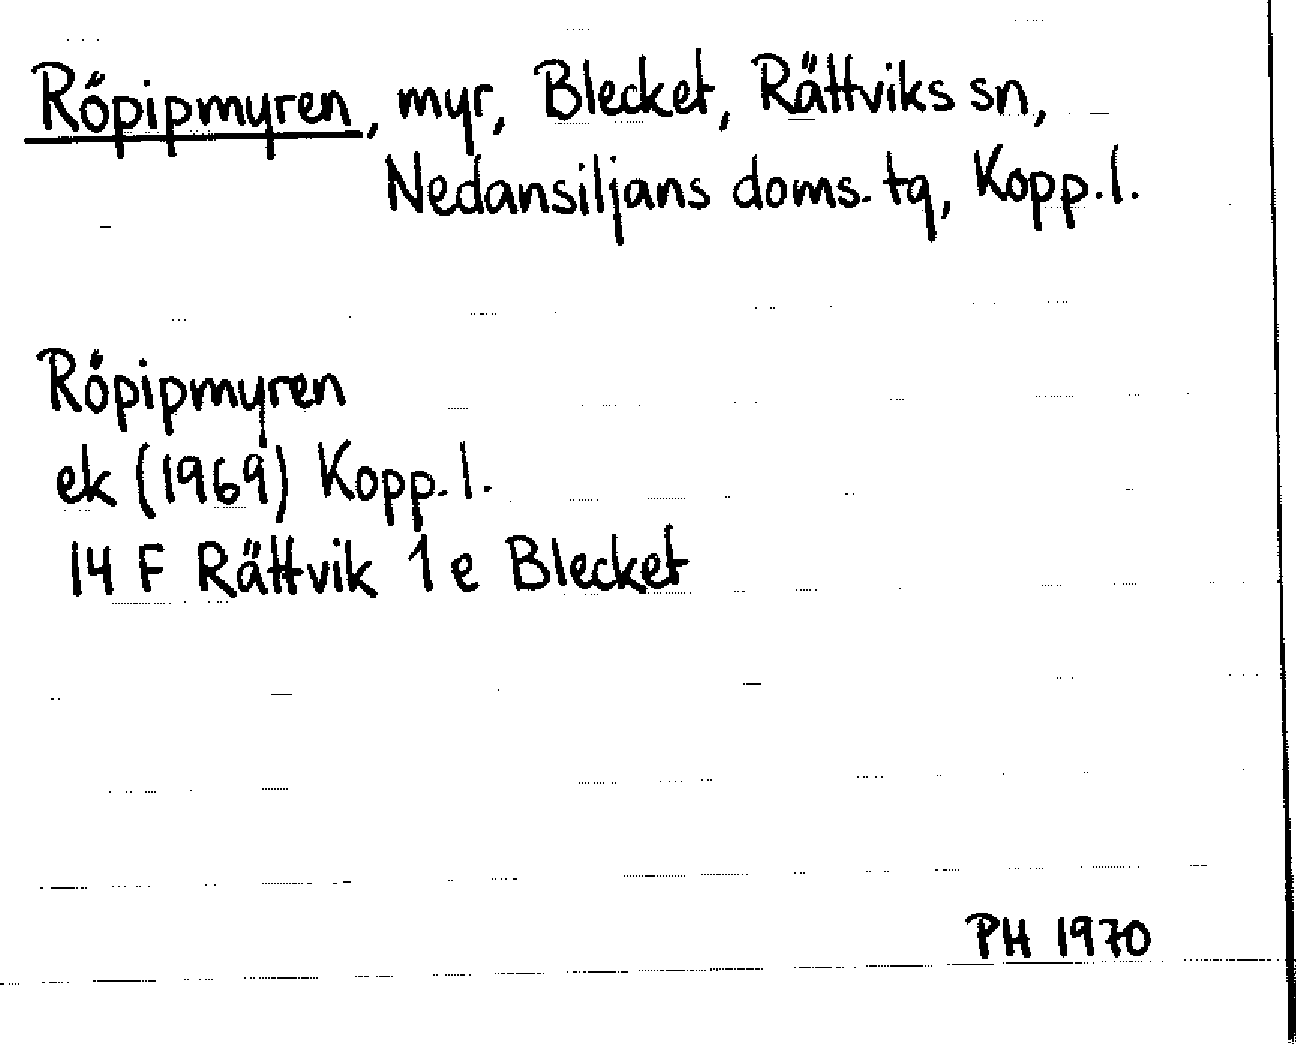 Röpipmyren, myr, Blecket, Rättviks sn,
Nedansiljans doms. tg, Kopp. l.
Röpipmyren
ek (1969) Kopp. l.
14 F Rättvik 1 e Blecket
PH 1970